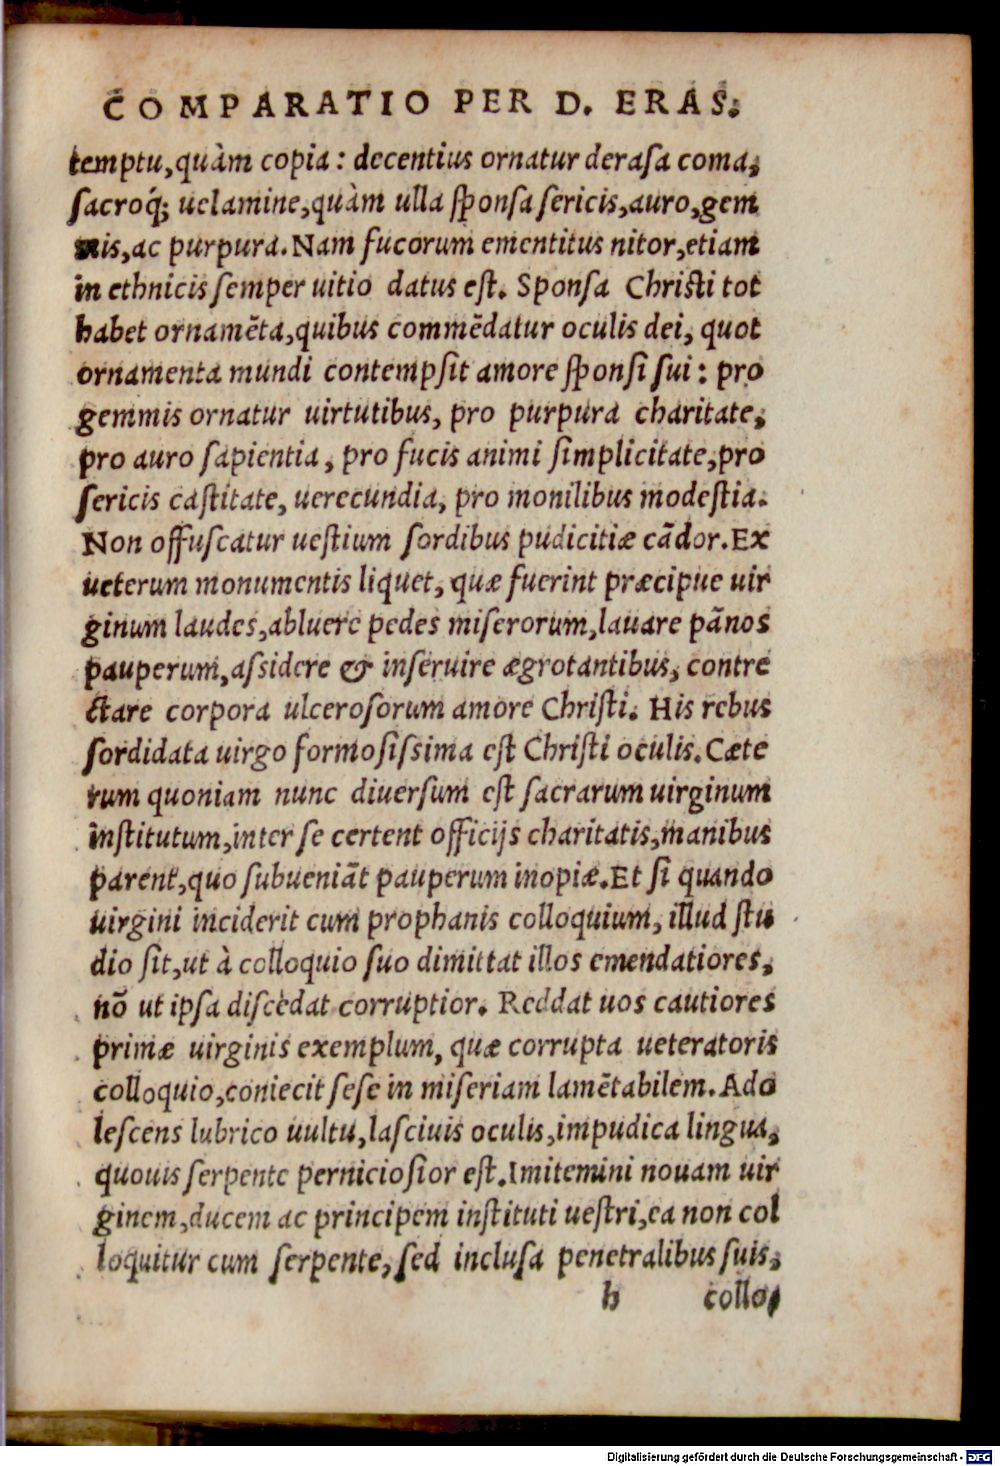 COMPARATIO PER D. ERAS.
temptu,quàm copia : decentius ornatur derasa coma,
sacroq́; uelamine,quàm ulla sponsa sericis,auro,gem
mis,ac purpura.Nam fucorum ementitus nitor,etiam
in ethnicis semper uitio datus est. Sponsa Christi tot
habet ornamēta,quibus commēdatur oculis dei, quot
ornamenta mundi contempsit amore sponsi sui : pro
gemmis ornatur uirtutibus, pro purpura charitate,
pro auro sapientia, pro fucis animi simplicitate,pro
sericis castitate, uerecundia, pro monilibus modestia.
Non offuscatur uestium sordibus pudicitiæ cādor.Ex
ueterum monumentis liquet, quæ fuerint præcipue uir
ginum laudes,abluere pedes miserorum,lauare pānos
pauperum,assidere & inseruire ægrotantibus, contre
ctare corpora ulcerosorum amore Christi. His rebus
sordidata uirgo formosissima est Christi oculis.Cæte
rum quoniam nunc diuersum est sacrarum uirginum
institutum,inter se certent officijs charitatis,manibus
parent,quo subueniāt pauperum inopiæ.Et si quando
uirgini inciderit cum prophanis colloquium, illud stu
dio sit,ut à colloquio suo dimittat illos emendatiores,
nō ut ipsa discedat corruptior. Reddat uos cautiores
primæ uirginis exemplum, quæ corrupta ueteratoris
colloquio,coniecit sese in miseriam lamētabilem.Ado
lescens lubrico uultu,lasciuis oculis,impudica lingua,
quouis serpente perniciosior est.Imitemini nouam uir
ginem,ducem ac principem instituti uestri,ea non col
loquitur cum serpente,sed inclusa penetralibus suis,
h collo,
Digitalisierung gefördert durch die Deutsche Forschungsgemeinschaft - DFG